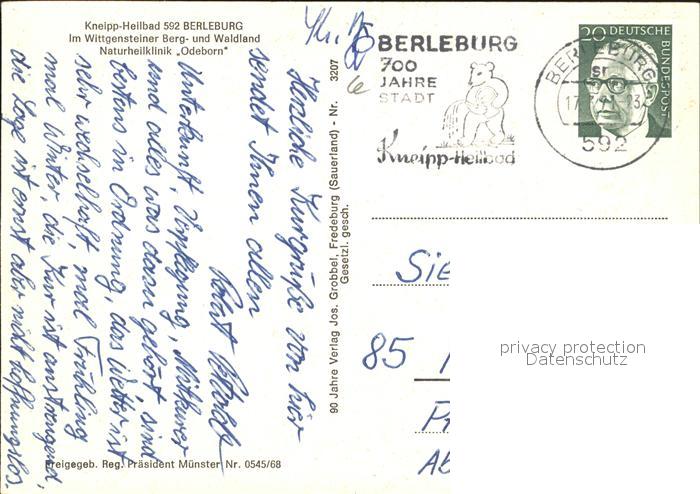 Kneipp-Heilbad 592 BERLEBURG
Im Wittgensteiner Berg- und Waldland
Naturheilklinik „Odeborn"
Herzliche Kurgrüße von hier
sendet Ihnen allen
Robert
Unterkunft, Verpflegung, Mitkurer
und alles was daran gehört, sind
bestens in Ordnung, das Wetter ist
sehr wechselhaft, mal Frühling
mal Winter, die Kur ist anstrengend,
die Lage ist ernst aber nicht hoffnungslos.
Freigegeb. Reg. Präsident Münster Nr. 0545/68
90 Jahre Verlag Jos. Grobbel, Fredeburg (Sauerland) - Nr. 3207
Gesetzl. gesch.
BERLEBURG
700
JAHRE
STADT
Kneipp-Heilbad
BERLEBURG
592
20 DEUTSCHE BUNDESPOST
Sie
85
privacy protection
Datenschutz